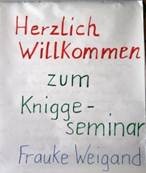 Herzlich
Willkommen
zum
Knigge-
seminar
Frauke Weigand